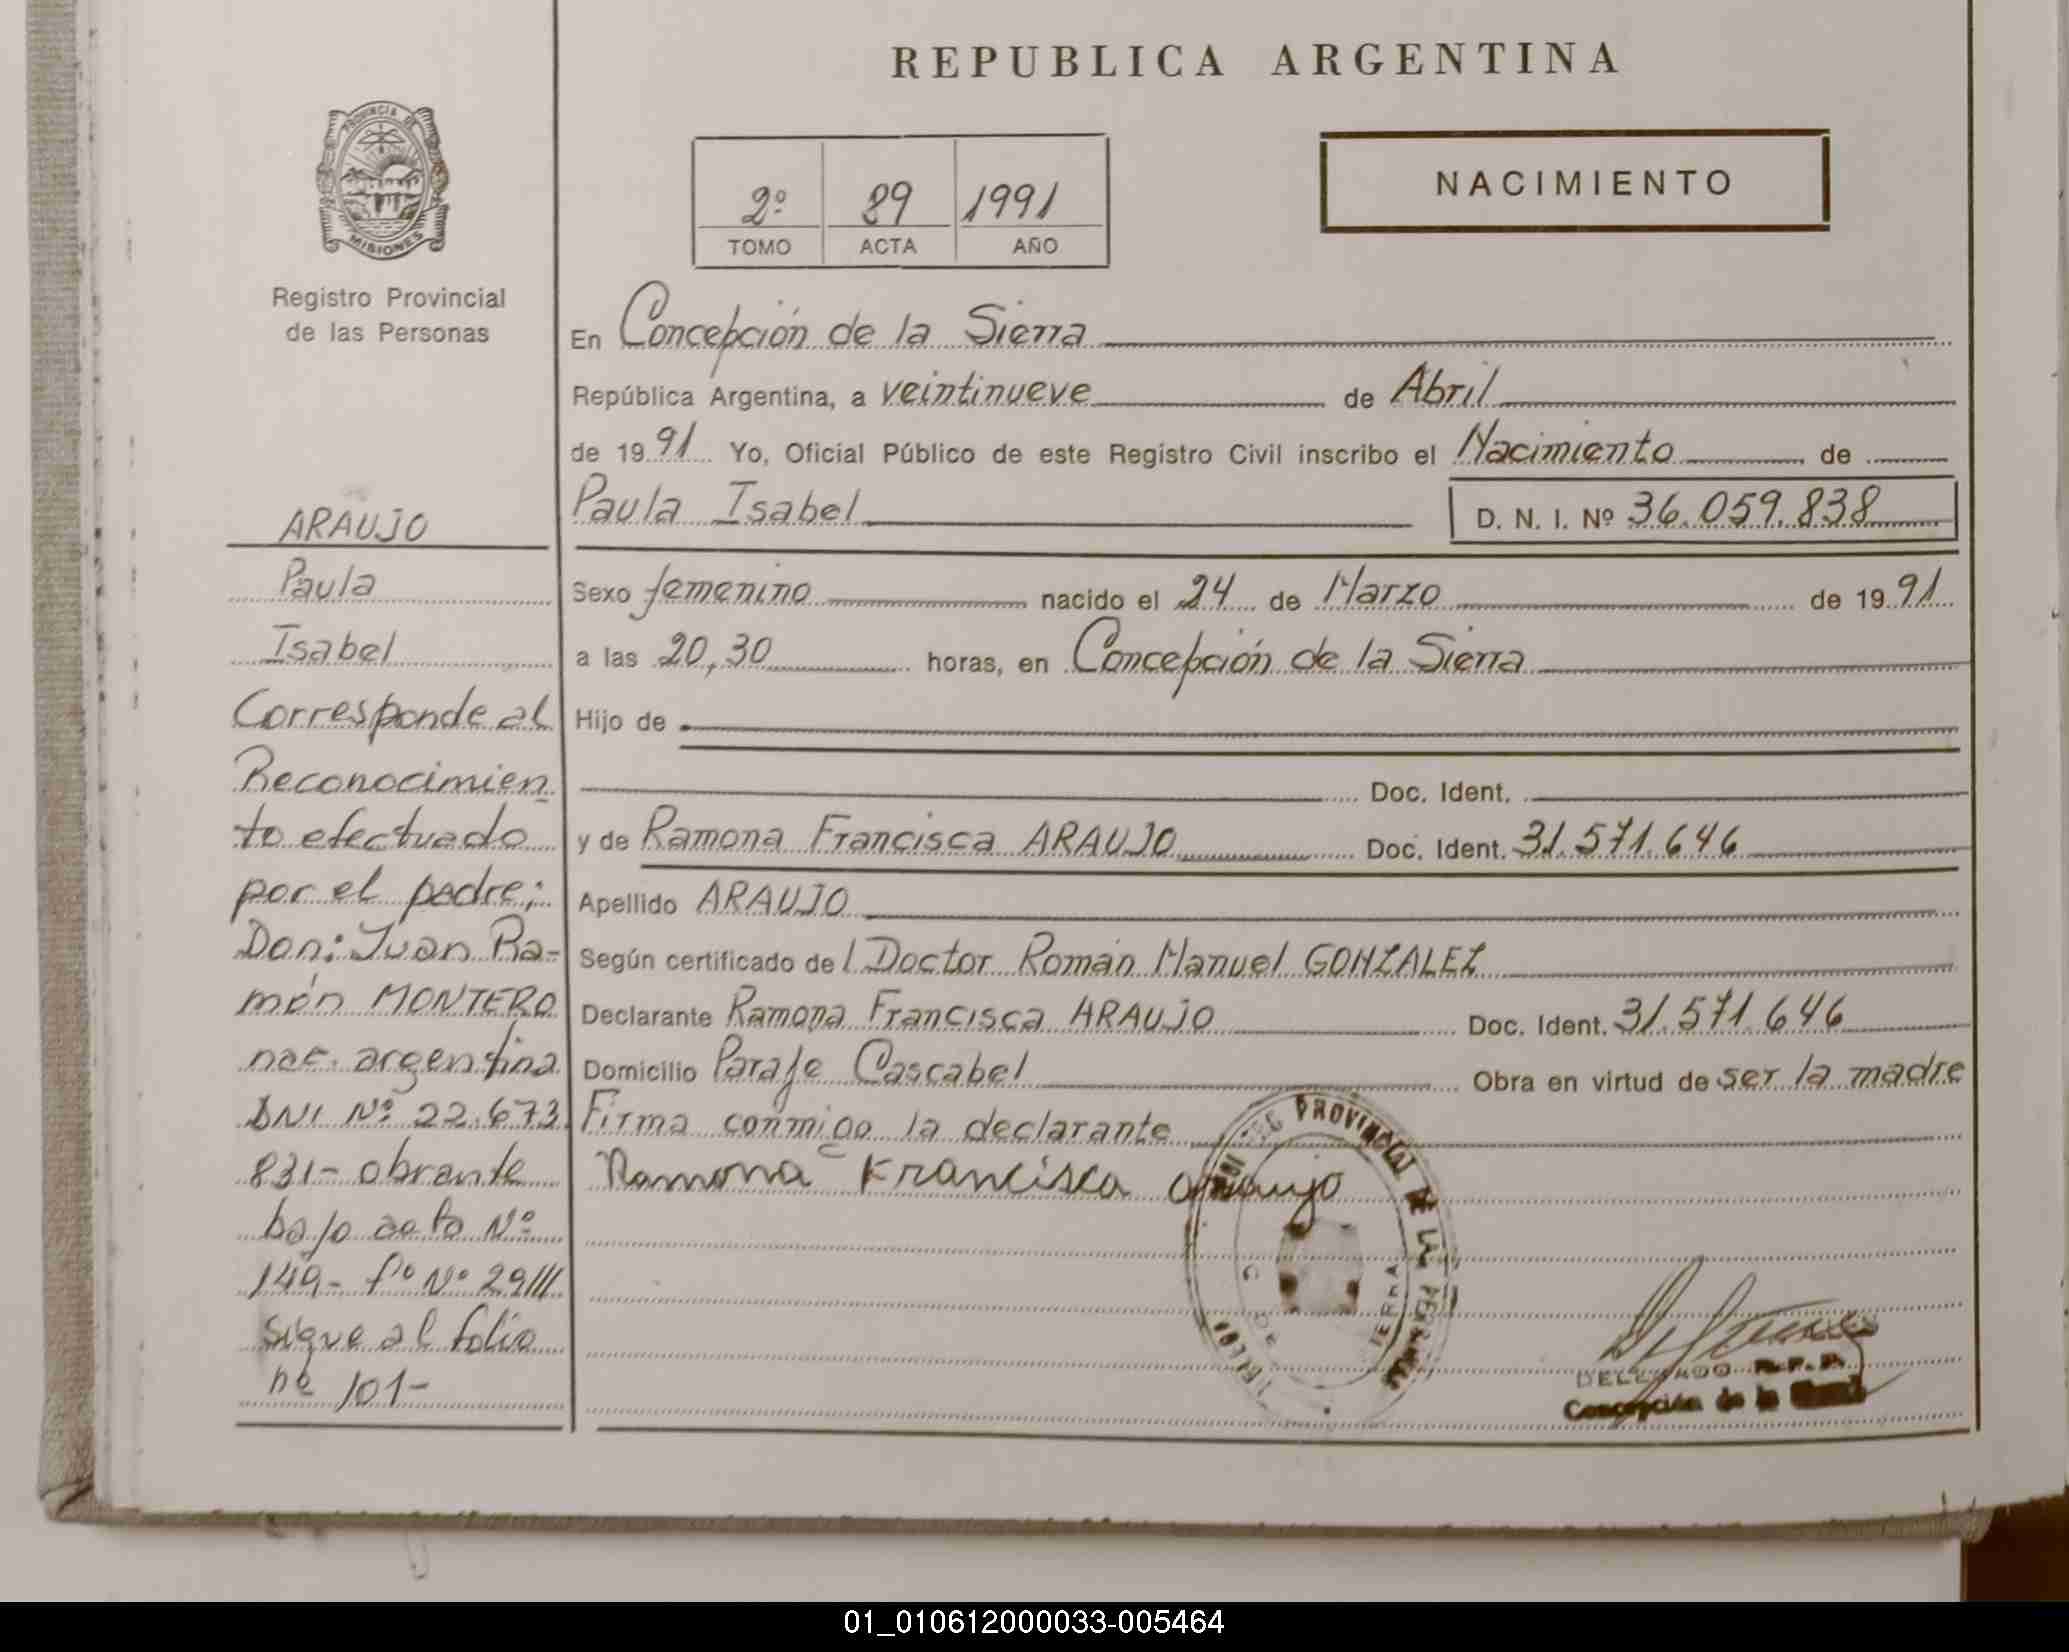 REPUBLICA ARGENTINA
PROVINCIA DE
MISIONES
Registro Provincial
de las Personas
2º 89 1991
TOMO ACTA AÑO
NACIMIENTO
ARAUJO
Paula
Isabel
Corresponde al
Reconocimien
to efectuado
por el padre;
Don: Juan Ra-
món MONTERO
nac. argentina
DNI Nº 22.673.
831- obrante
bajo acta Nº
149- fº Nº 29///
sigue al folio
nº 101-
En Concepción de la Sierra
República Argentina, a veintinueve de Abril
de 1991 Yo, Oficial Público de este Registro Civil inscribo el Nacimiento de
Paula Isabel D. N. I. Nº 36.059.838
Sexo femenino nacido el 24 de Marzo de 1991
a las 20,30 horas, en Concepción de la Sierra
Hijo de
Doc. Ident.
y de Ramona Francisca ARAUJO Doc. Ident. 31.571.646
Apellido ARAUJO
Según certificado del Doctor Román Manuel GONZALEZ
Declarante Ramona Francisca ARAUJO Doc. Ident. 31.571.646
Domicilio Paraje Cascabel Obra en virtud de ser la madre
Firma conmigo la declarante
Ramona Francisca Araujo
PROVINCIAL DE LAS
DELEGADO R.P.P.
Concepción de la
01_010612000033-005464